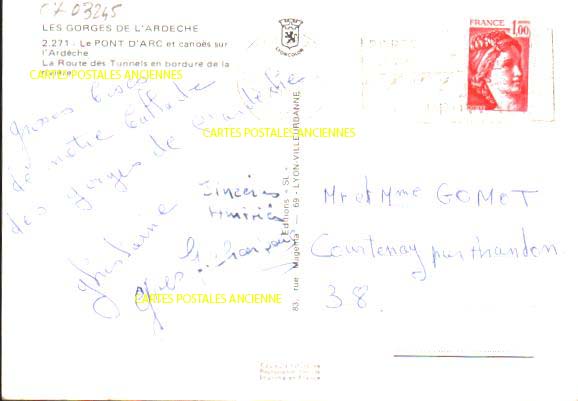 CX 03245
LES GORGES DE L'ARDECHE
2.271 - Le PONT D'ARC et canoës sur
l'Ardèche
La Route des Tunnels en bordure de la
CARTES POSTALES ANCIENNES
LYONCOLOR
FRANCE 1,00
Grosses bises
de notre ballade
des gorges de
CARTES POSTALES ANCIENNES
Sincères
Amitiés
Ghislaine
Gilles
CARTES POSTALES ANCIENNE
Editions « SL »
83, rue Magenta — 69 - LYON-VILLEURBANNE
Mr et Mme GOMET
Courtenay par
38.
Imprimé en France